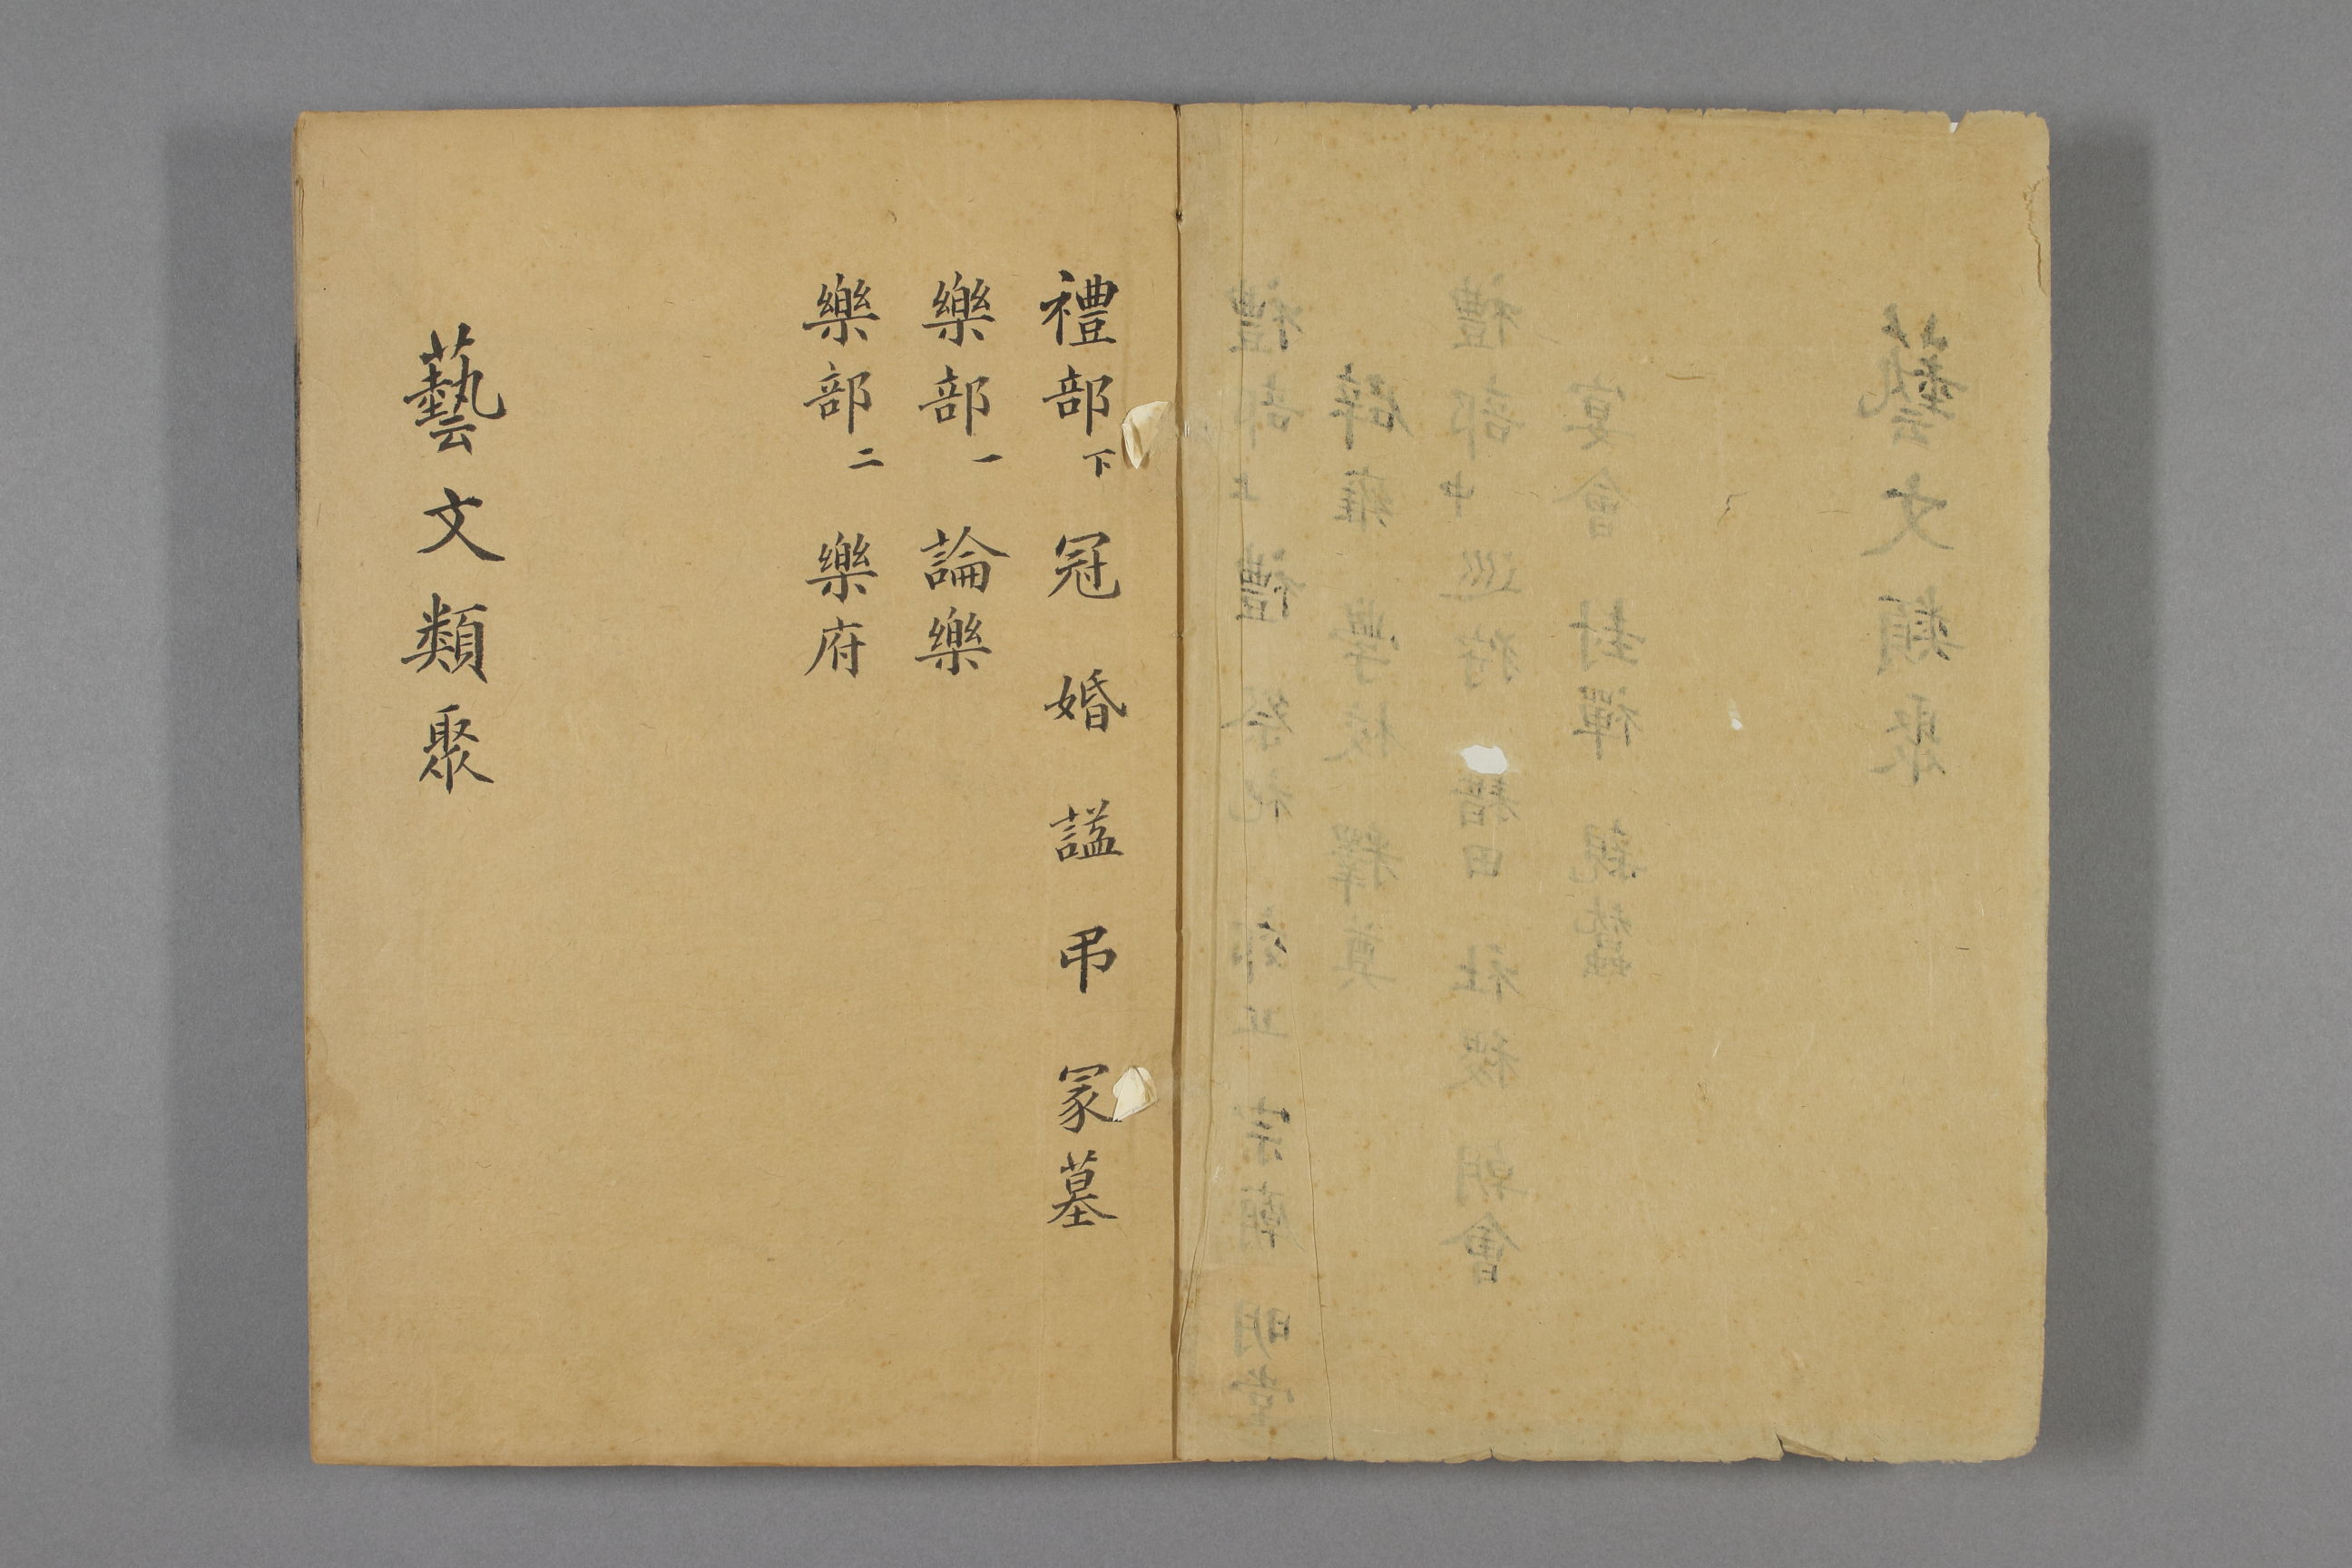 禮部上 禮 祭祀 郊丘 宗廟 明堂
辟雍 學校 釋奠
禮部中 巡狩 耤田 社稷 朝會
宴會 封禪 親蠶
藝文類聚
禮部下 冠 婚 謚 弔 冢墓
樂部一 論樂
樂部二 樂府
藝文類聚